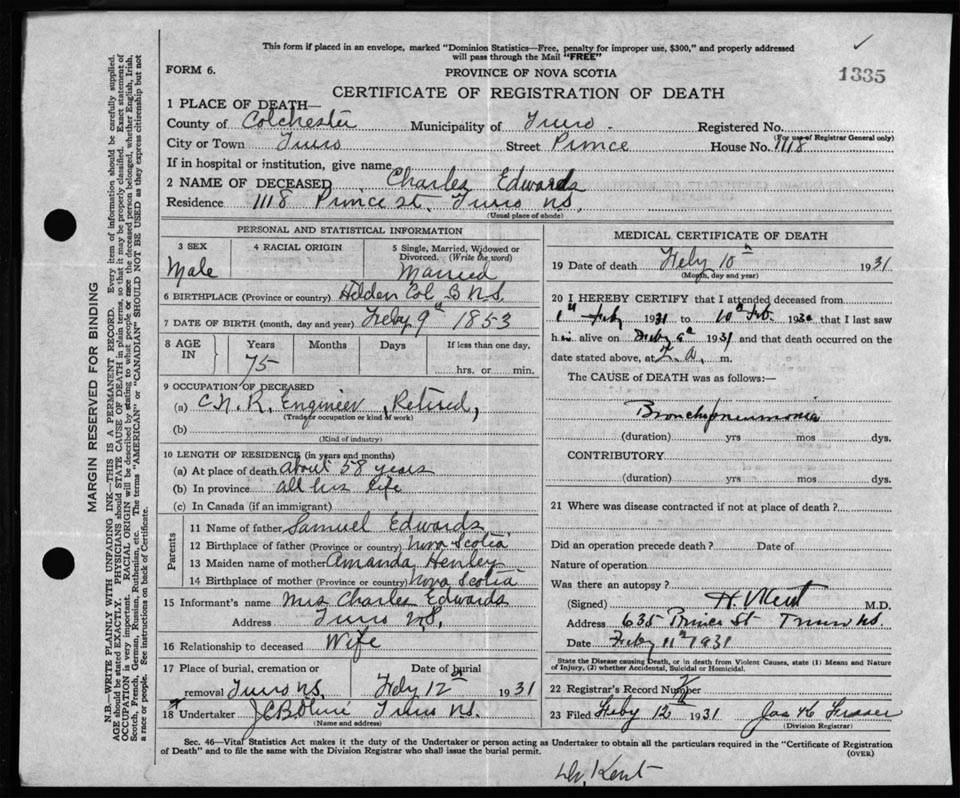 This form if placed in an envelope, marked "Dominion Statistics—Free, penalty for improper use, $300," and properly addressed
will pass through the Mail "FREE"
FORM 6.
PROVINCE OF NOVA SCOTIA
1335
CERTIFICATE OF REGISTRATION OF DEATH
1 PLACE OF DEATH—
County of Colchester Municipality of Truro. Registered No.
(For use of Registrar General only)
City or Town Truro Street Prince House No. 1118
If in hospital or institution, give name
2 NAME OF DECEASED Charles Edwards
Residence 1118 Prince St. Truro N.S.
(Usual place of abode)
PERSONAL AND STATISTICAL INFORMATION
3 SEX Male
4 RACIAL ORIGIN
5 Single, Married, Widowed or
Divorced. (Write the word)
Married
6 BIRTHPLACE (Province or country) Hilden Col N.S.
7 DATE OF BIRTH (month, day and year) Feby 9th 1853
8 AGE IN Years Months Days If less than one day,
75 hrs. or min.
9 OCCUPATION OF DECEASED
(a) C.N.R. Engineer, Retired,
(Trade or occupation or kind of work)
(b)
(Kind of industry)
10 LENGTH OF RESIDENCE (in years and months)
(a) At place of death about 58 years
(b) In province all his life
(c) In Canada (if an immigrant)
Parents
11 Name of father Samuel Edwards
12 Birthplace of father (Province or country) Nova Scotia
13 Maiden name of mother Amanda Henley
14 Birthplace of mother (Province or country) Nova Scotia
15 Informant's name Mrs Charles Edwards
Address Truro N.S.
16 Relationship to deceased Wife
17 Place of burial, cremation or Date of burial
removal Truro N.S. Feby 12th 1931
18 Undertaker Truro N.S.
(Name and address)
MEDICAL CERTIFICATE OF DEATH
19 Date of death Feby 10th 1931
(Month, day and year)
20 I HEREBY CERTIFY that I attended deceased from
1st Feby 1931 to 10th Feb. 193 that I last saw
him alive on Feby 1931 and that death occurred on the
date stated above, at a. m.
The CAUSE of DEATH was as follows:—
Bronchopneumonia
(duration) yrs mos dys.
CONTRIBUTORY
(duration) yrs mos dys.
21 Where was disease contracted if not at place of death?
Did an operation precede death? Date of
Nature of operation
Was there an autopsy?
(Signed) H. V. Kent M.D.
Address 635 Prince St Truro N.S.
Date Feby 11th 1931
State the Disease causing Death, or in death from Violent Causes, state (1) Means and Nature
of Injury, (2) whether Accidental, Suicidal or Homicidal.
22 Registrar's Record Number
23 Filed Feby 12th 1931 Jas H Fraser
(Division Registrar)
Sec. 46—Vital Statistics Act makes it the duty of the Undertaker or person acting as Undertaker to obtain all the particulars required in the "Certificate of Registration
of Death" and to file the same with the Division Registrar who shall issue the burial permit.
(OVER)
Dr. Kent
MARGIN RESERVED FOR BINDING
N.B.—WRITE PLAINLY WITH UNFADING INK—THIS IS A PERMANENT RECORD. Every item of information should be carefully supplied.
AGE should be stated EXACTLY. PHYSICIANS should STATE CAUSE OF DEATH in plain terms, so that it may be properly classified. Exact statement of
OCCUPATION is very important. RACIAL ORIGIN will be described by stating to what people or race the deceased person belonged, whether English, Irish,
Scotch, French, German, Russian, Ruthenian, etc. The terms "AMERICAN" or "CANADIAN" SHOULD NOT BE USED as they express citizenship but not
a race or people. See instructions on back of Certificate.